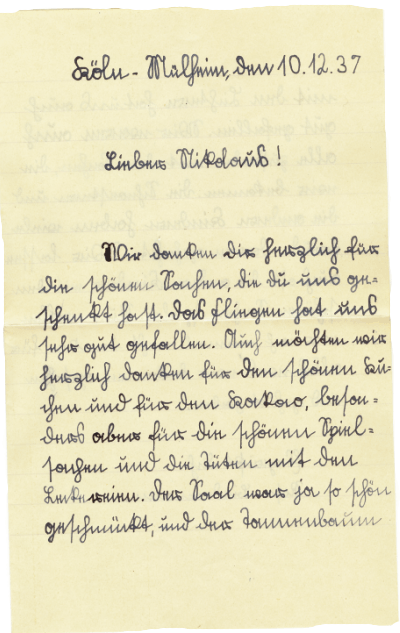 Köln - Mülheim, den 10.12.37
Lieber Nikolaus!
Wir danken dir herzlich für
die schönen Sachen, die du uns ge=
schenkt hast. Das fliegen hat uns
sehr gut gefallen. Auch möchten wir
herzlich danken für den schönen Ku-
chen und für den Kakao, beson-
ders aber für die schönen Spiel=
sachen und die Tüten mit den
Leckereien. Der Saal war ja so schön
geschmückt, und der Tannenbaum